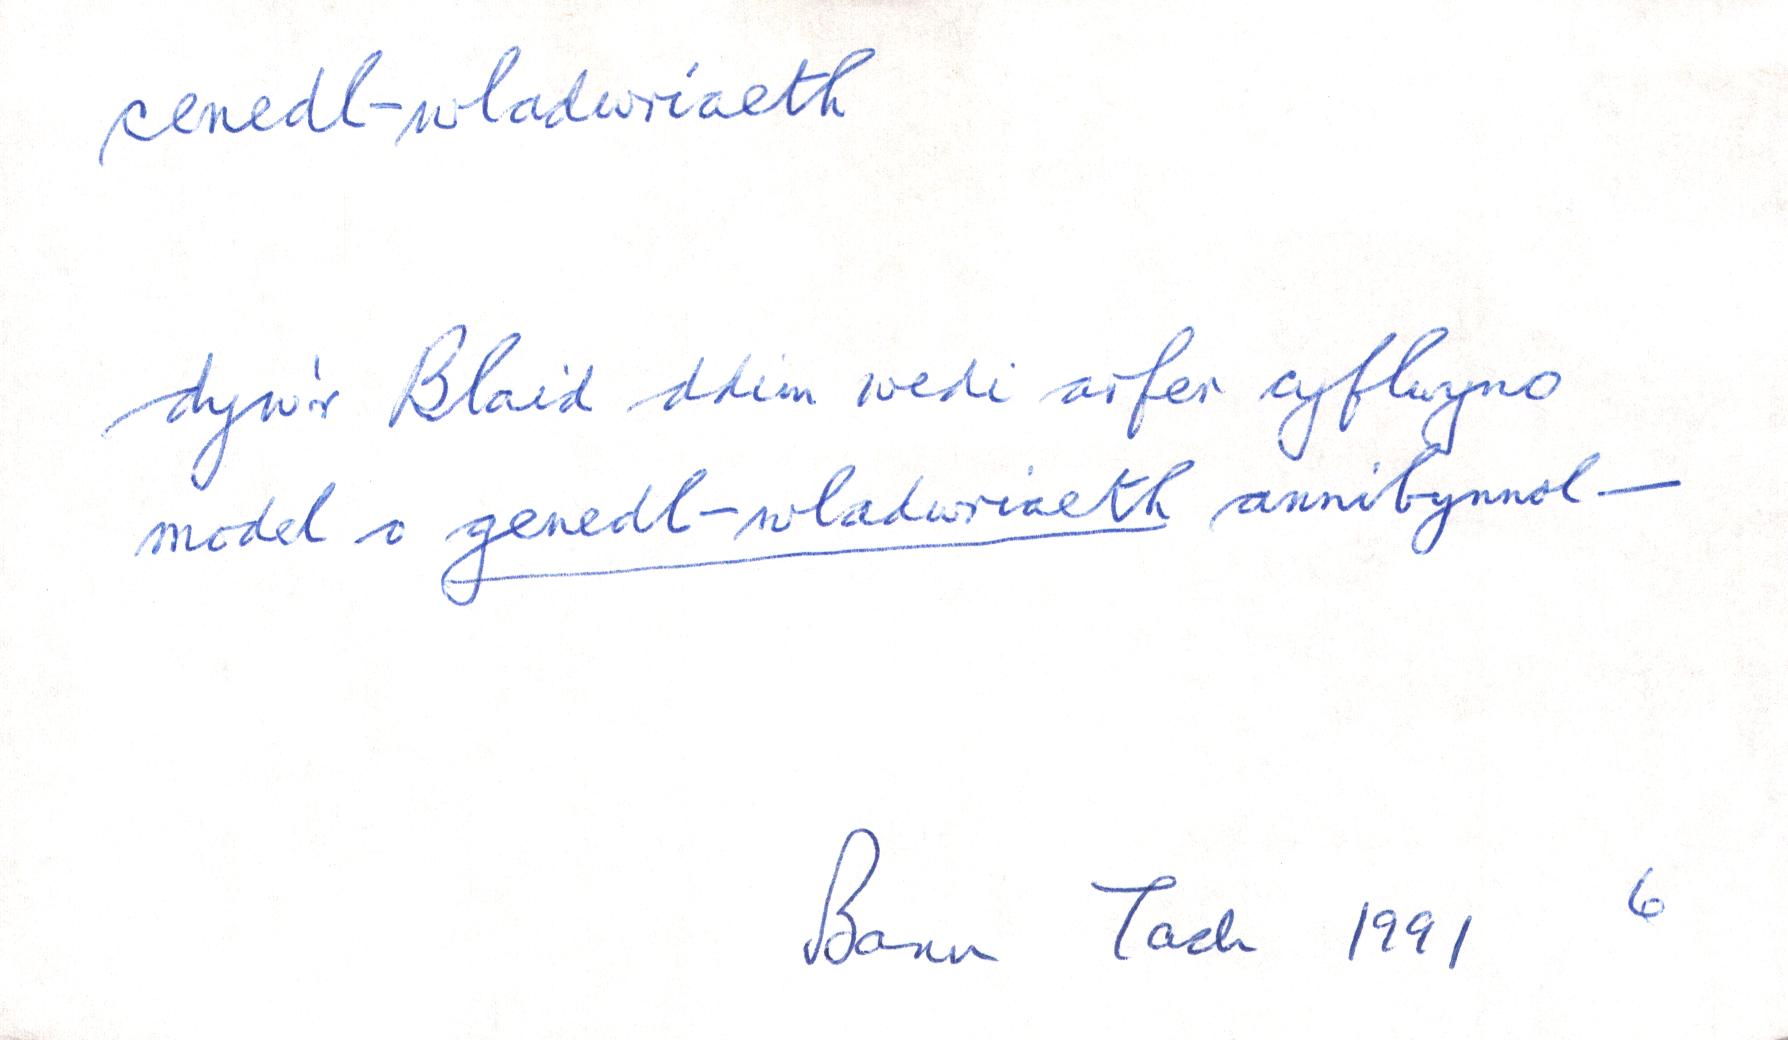 cenedl-wladwriaeth
dyw'r Blaid ddim wedi arfer cyflwyno
model o genedl-wladwriaeth annibynnol—
Barn Tach 1991 6